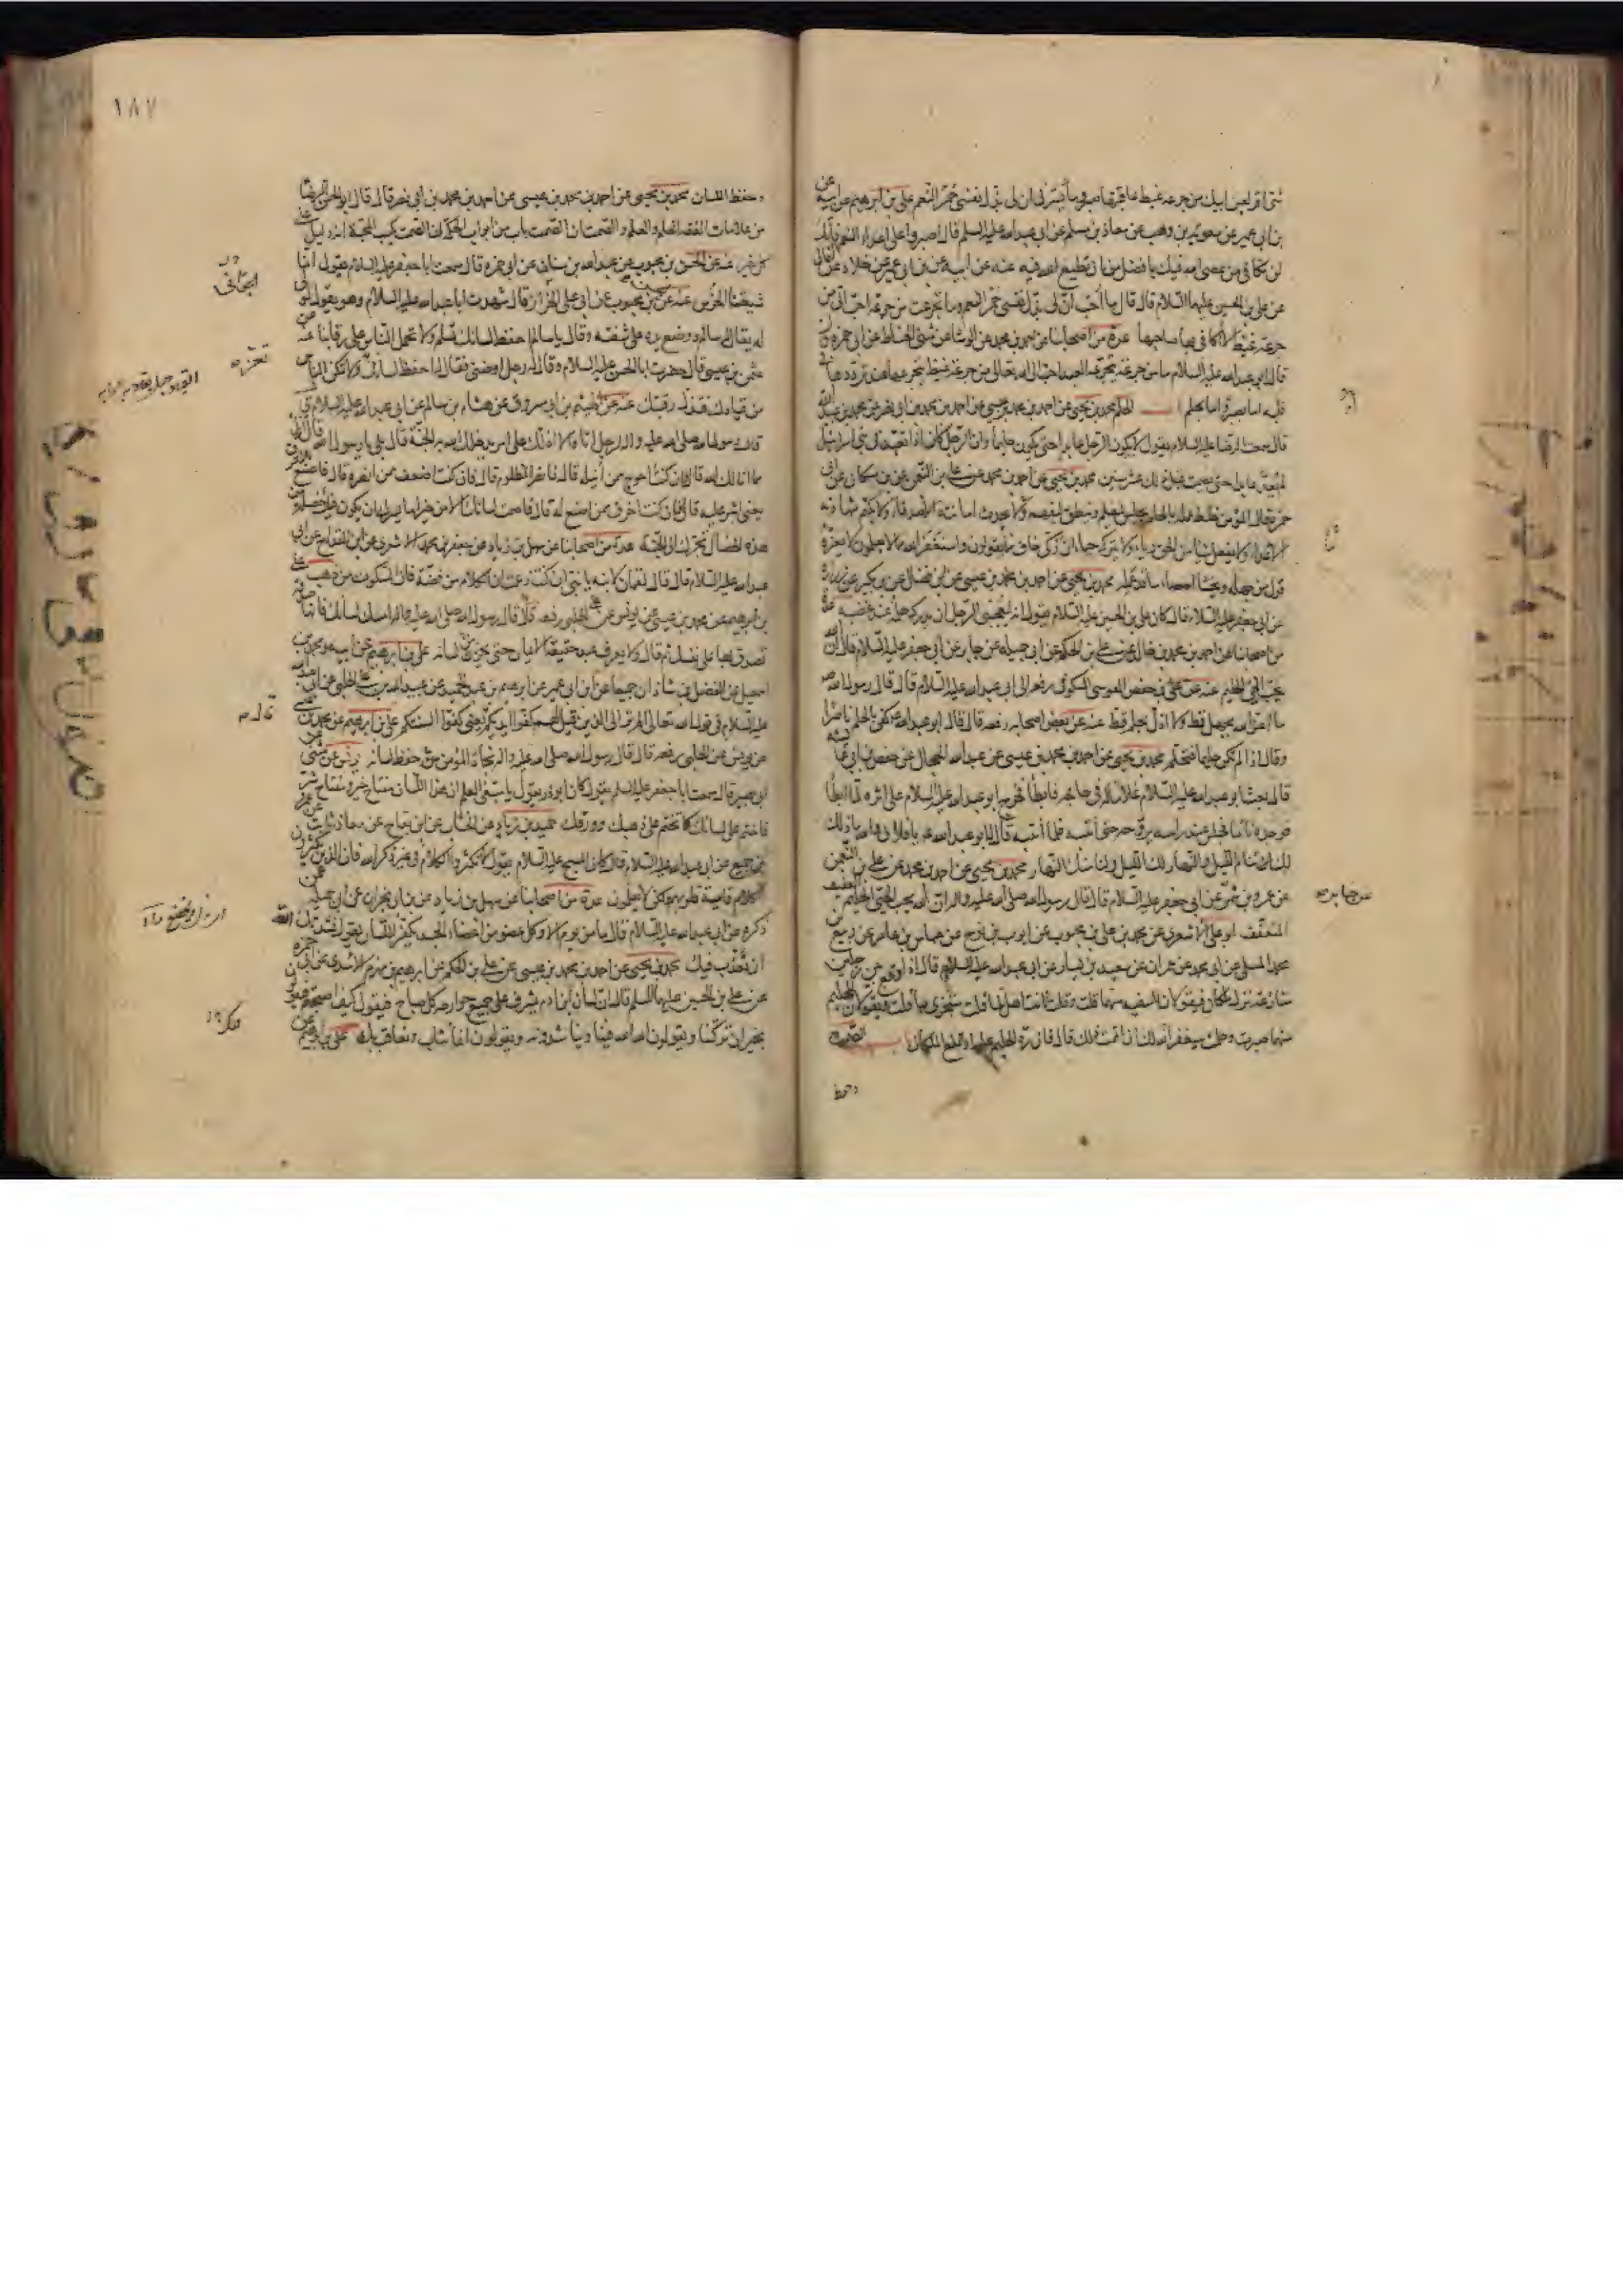 شئ اقر لعين ابيك من جرعة غيظ عاقبتها صبر وما يسرني ان لي بذل نفسي حمر النعم علي بن ابرهيم عن ابيه عن
بن ابي عمير عن معوية بن وهب عن معاذ بن مسلم عن ابي عبد الله عليه السلم قال اصبروا على اعداء النعم فانك
لن تكافي من عصى الله فيك بافضل من ان تطيع الله فيه عنه عن ابيه عن بن ابي عمير عن خلاد عن الثمالي
عن علي بن الحسين عليهما السلام قال قال ما احب ان لي بذل نفسي حمر النعم وما تجرعت من جرعة احب الي من
جرعة غيظ لا اكافي بها صاحبها عدة من اصحابنا عن احمد بن محمد عن الوشا عن مثنى الحناط عن ابي حمزة قال
قال ابو عبد الله عليه السلام ما من جرعة يتجرعها العبد احب الى الله تعالى من جرعة غيظ يتجرعها عند ترددها في
قلبه اما بصبر واما بحلم الحلم محمد بن يحيى عن احمد بن محمد بن عيسى عن احمد بن محمد بن ابي نصر عن محمد بن عبيد الله
قال سمعت الرضا عليه السلام يقول لا يكون الرجل عابدا حتى يكون حليما وان الرجل كان اذا تعبد في بني اسرائيل
لم يعد عابدا حتى يصمت قبل ذلك عشر سنين محمد بن يحيى عن احمد بن محمد عن علي بن النعمن عن بن مسكان عن ابي
حمزة قال المؤمن خلط عمله بالحلم يجلس ليعلم وينطق ليفهم ولا يحدث امانته الاصدقاء ولا يكتم شهادته
الاعداء ولا يفعل شيئا من الحق رياء ولا يتركه حياء ان زكي خاف مما يقولون واستغفر الله مما لا يعلمون لا يغره
قول من جهله ويخشى احصاء ما قد عمله محمد بن يحيى عن احمد بن محمد بن عيسى عن بن فضال عن بن بكير عن زرارة
عن ابي جعفر عليه السلام قال كان علي بن الحسين عليه السلام يقول انه ليعجبني الرجل ان يدركه حلمه عند غضبه عدة
من اصحابنا عن احمد بن محمد بن خالد عن علي بن الحكم عن ابي جميلة عن جابر عن ابي جعفر عليه السلام قال ان الله
يحب الحيي الحليم عنه عن علي بن حفص القوسي الكوفي رفعه الى ابي عبد الله عليه السلام قال قال رسول الله ص
ما اعز الله بجهل قط ولا اذل بحلم قط عنه عن بعض اصحابه رفعه قال قال ابو عبد الله كفى بالحلم ناصرا
وقال اذا لم تكن حليما فتحلم محمد بن يحيى عن احمد بن محمد بن عيسى عن عبد الله الحجال عن حفص بن ابي عائشة
قال بعث ابو عبد الله عليه السلام غلاما له في حاجة فابطأ فخرج ابو عبد الله عليه السلام على اثره لما ابطأ
فوجده نائما فجلس عند راسه يروحه حتى انتبه فلما انتبه قال له ابو عبد الله يا فلان والله ما ذلك
لك تنام الليل والنهار لك الليل ولنا منك النهار محمد بن يحيى عن احمد بن محمد عن علي بن النعمن
عن عمرو بن شمر عن ابي جعفر عليه السلام قال قال رسول الله صلى الله عليه واله ان الله يحب الحيي الحليم العفيف
المتعفف ابو علي الاشعري عن محمد بن علي بن محبوب عن ايوب بن نوح عن عباس بن عامر عن ربيع بن
محمد المسلي عن ابي محمد عن عمران عن سعيد بن يسار عن ابي عبد الله عليه السلام قال اذا وقع بين رجلين
منازعة نزل ملكان فيقولان للسفيه منهما قلت وقلت وانت اهل لما قلت ستجزى بما قلت ويقولان للحليم
منهما صبرت وحلمت سيغفر الله لك ان اتممت ذلك قال فان رد الحليم عليه ارتفع الملكان باب الصمت
وحفظ
١٨٧
وحفظ اللسان محمد بن يحيى عن احمد بن محمد بن عيسى عن احمد بن محمد بن ابي نصر قال قال ابو الحسن الرضا
من علامات الفقه الحلم والعلم والصمت ان الصمت باب من ابواب الحكمة ان الصمت يكسب المحبة انه دليل على
كل خير عنه عن الحسن بن محبوب عن عبد الله بن سنان عن ابي حمزة قال سمعت ابا جعفر عليه السلام يقول انما
شيعتنا الخرس عنه عن الحسن بن محبوب عن ابي علي الخزاز قال شهدت ابا عبد الله عليه السلام وهو يقول لمولى
له يقال له سالم ووضع يده على شفته وقال يا سالم احفظ لسانك تسلم ولا تحمل الناس على رقابنا عنه عن
عثمن بن عيسى قال حضرت ابا الحسن عليه السلام وقال له رجل اوصني فقال له احفظ لسانك تعز ولا تمكن الناس
من قيادك فتذل رقبتك عنه عن الهيثم بن ابي مسروق عن هشام بن سالم عن ابي عبد الله عليه السلام قال
قال رسول الله صلى الله عليه واله لرجل اتاه الا ادلك على امر يدخلك الله به الجنة قال بلى يا رسول الله قال انل
مما انالك الله قال فان كنت احوج ممن انيله قال فانصر المظلوم قال فان كنت اضعف ممن انصره قال فاصنع للاخرق
يعني اشر عليه قال فان كنت اخرق ممن اصنع له قال فاصمت لسانك الا من خير اما يسرك ان يكون فيك خصلة من
هذه الخصال تجرك الى الجنة عدة من اصحابنا عن سهل بن زياد عن جعفر بن محمد الاشعري عن ابن القداح عن ابي
عبد الله عليه السلام قال قال لقمان لابنه يا بني ان كنت زعمت ان الكلام من فضة فان السكوت من ذهب علي
بن ابرهيم عن محمد بن عيسى عن يونس عن الحلبي رفعه قال قال رسول الله صلى الله عليه واله امسك لسانك فانها صدقة
تصدق بها على نفسك ثم قال ولا يعرف عبد حقيقة الايمان حتى يخزن من لسانه علي بن ابرهيم عن ابيه ومحمد بن
اسمعيل عن الفضل بن شاذان جميعا عن ابن ابي عمير عن ابرهيم بن عبد الحميد عن عبيد الله بن علي الحلبي عن ابي عبد الله
عليه السلام في قول الله تعالى الم تر الى الذين قيل لهم كفوا ايديكم يعني كفوا السنتكم علي بن ابرهيم عن محمد بن عيسى
عن يونس عن الحلبي رفعه قال قال رسول الله صلى الله عليه واله نجاة المؤمن من حفظ لسانه يونس عن مثنى عن
ابي بصير قال سمعت ابا جعفر عليه السلم يقول كان ابو ذر يقول يا مبتغي العلم ان هذا اللسان مفتاح خير ومفتاح شر
فاختم على لسانك كما تختم على ذهبك وورقك حميد بن زياد عن الخشاب عن ابن بقاح عن معاذ بن ثابت عن عمرو
بن جميع عن ابي عبد الله عليه السلام قال كان المسيح عليه السلام يقول لا تكثروا الكلام في غير ذكر الله فان الذين يكثرون
الكلام قاسية قلوبهم ولكن لا يعلمون عدة من اصحابنا عن سهل بن زياد عن ابن ابي نجران عن ابي جميلة عمن
ذكره عن ابي عبد الله عليه السلام قال ما من يوم الا وكل عضو من اعضاء الجسد يكفر اللسان يقول نشدتك الله
ان نعذب فيك محمد بن يحيى عن احمد بن محمد بن عيسى عن علي بن الحكم عن ابرهيم بن مهزم الاسدي عن ابي حمزة
عن علي بن الحسين عليهما السلم قال ان لسان ابن ادم يشرف على جميع جوارحه كل صباح فيقول كيف اصبحتم فيقولون
بخير ان تركتنا ويقولون الله الله فينا ويناشدونه ويقولون انما نثاب ونعاقب بك علي بن ابرهيم عن